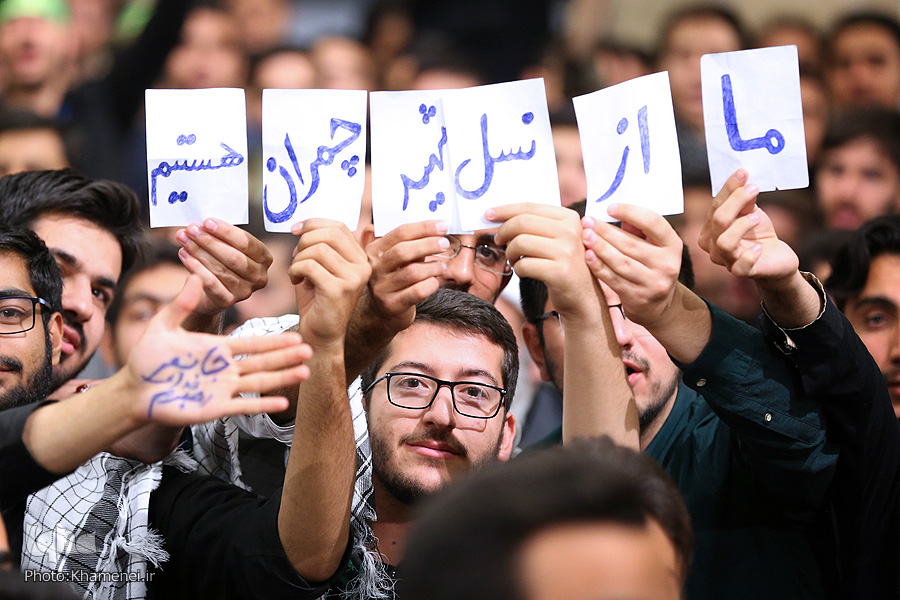 ما از نسل شهید چمران هستیم
جانم
فدای
رهبرم
Photo:Khamenei.ir